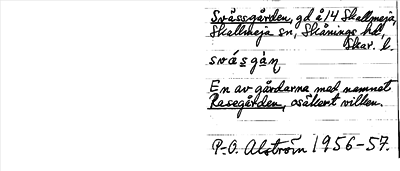 Svåssgården, gd å 14 Skallmeja,
Skallmeja sn, Skånings hd,
Skar. l.
svásgán
En av gårdarna med namnet
Rasegården, osäkert vilken.
P.-O. Alström 1956-57.